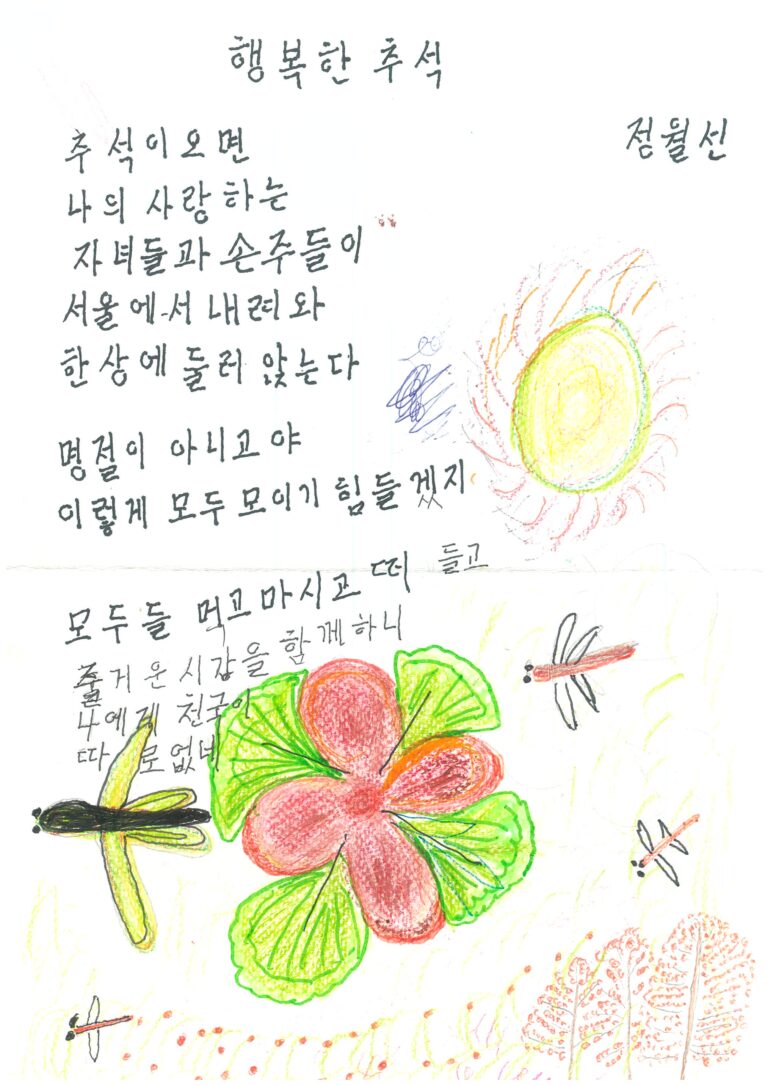 행복한 추석
정월선
추석이오면
나의 사랑하는
자녀들과 손주들이
서울에서 내려와
한상에 둘러 앉는다
명절이 아니고야
이렇게 모두 모이기 힘들겠지
모두들 먹고마시고 떠들고
즐거운시간을 함께하니
나에게 천국이
따로없네